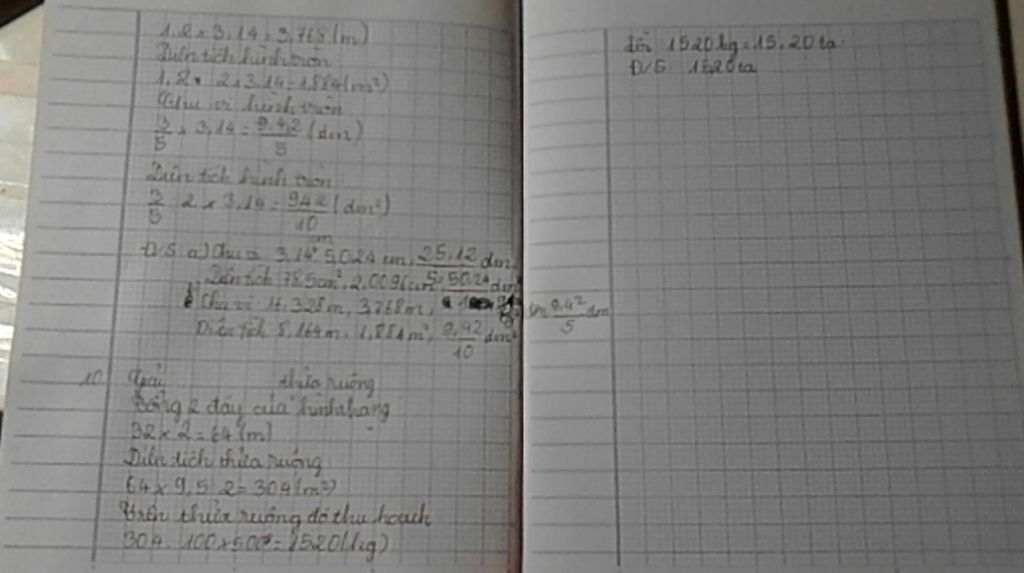 1,2 x 3,14 = 3,768 (m)
Diện tích hình tròn
1,2 : 2 x 3,14 = 1,884 (m²)
Chu vi hình tròn
3/5 x 3,14 = 9,42/5 (dm)
Diện tích hình tròn
3/5 : 2 x 3,14 = 9,42/10 (dm²)
Đ/S: a) Chu vi 3,14 cm, 50,24 cm, 25,12/5 dm
Diện tích 78,5 cm²,
b) Chu vi 16,328m, 3,768m, 9,42/5 dm
Diện tích 8,164m, 1,884m², 9,42/10 dm²
10 Giải
Tổng 2 đáy của thửa ruộng hình thang
32 x 2 = 64 (m)
Diện tích thửa ruộng
64 x 9,5 : 2 = 304 (m²)
Trên thửa ruộng đó thu hoạch
304 : 100 x 500 = 1520 (kg)
đổi 1520 kg = 15,20 tạ
Đ/S 15,20 tạ